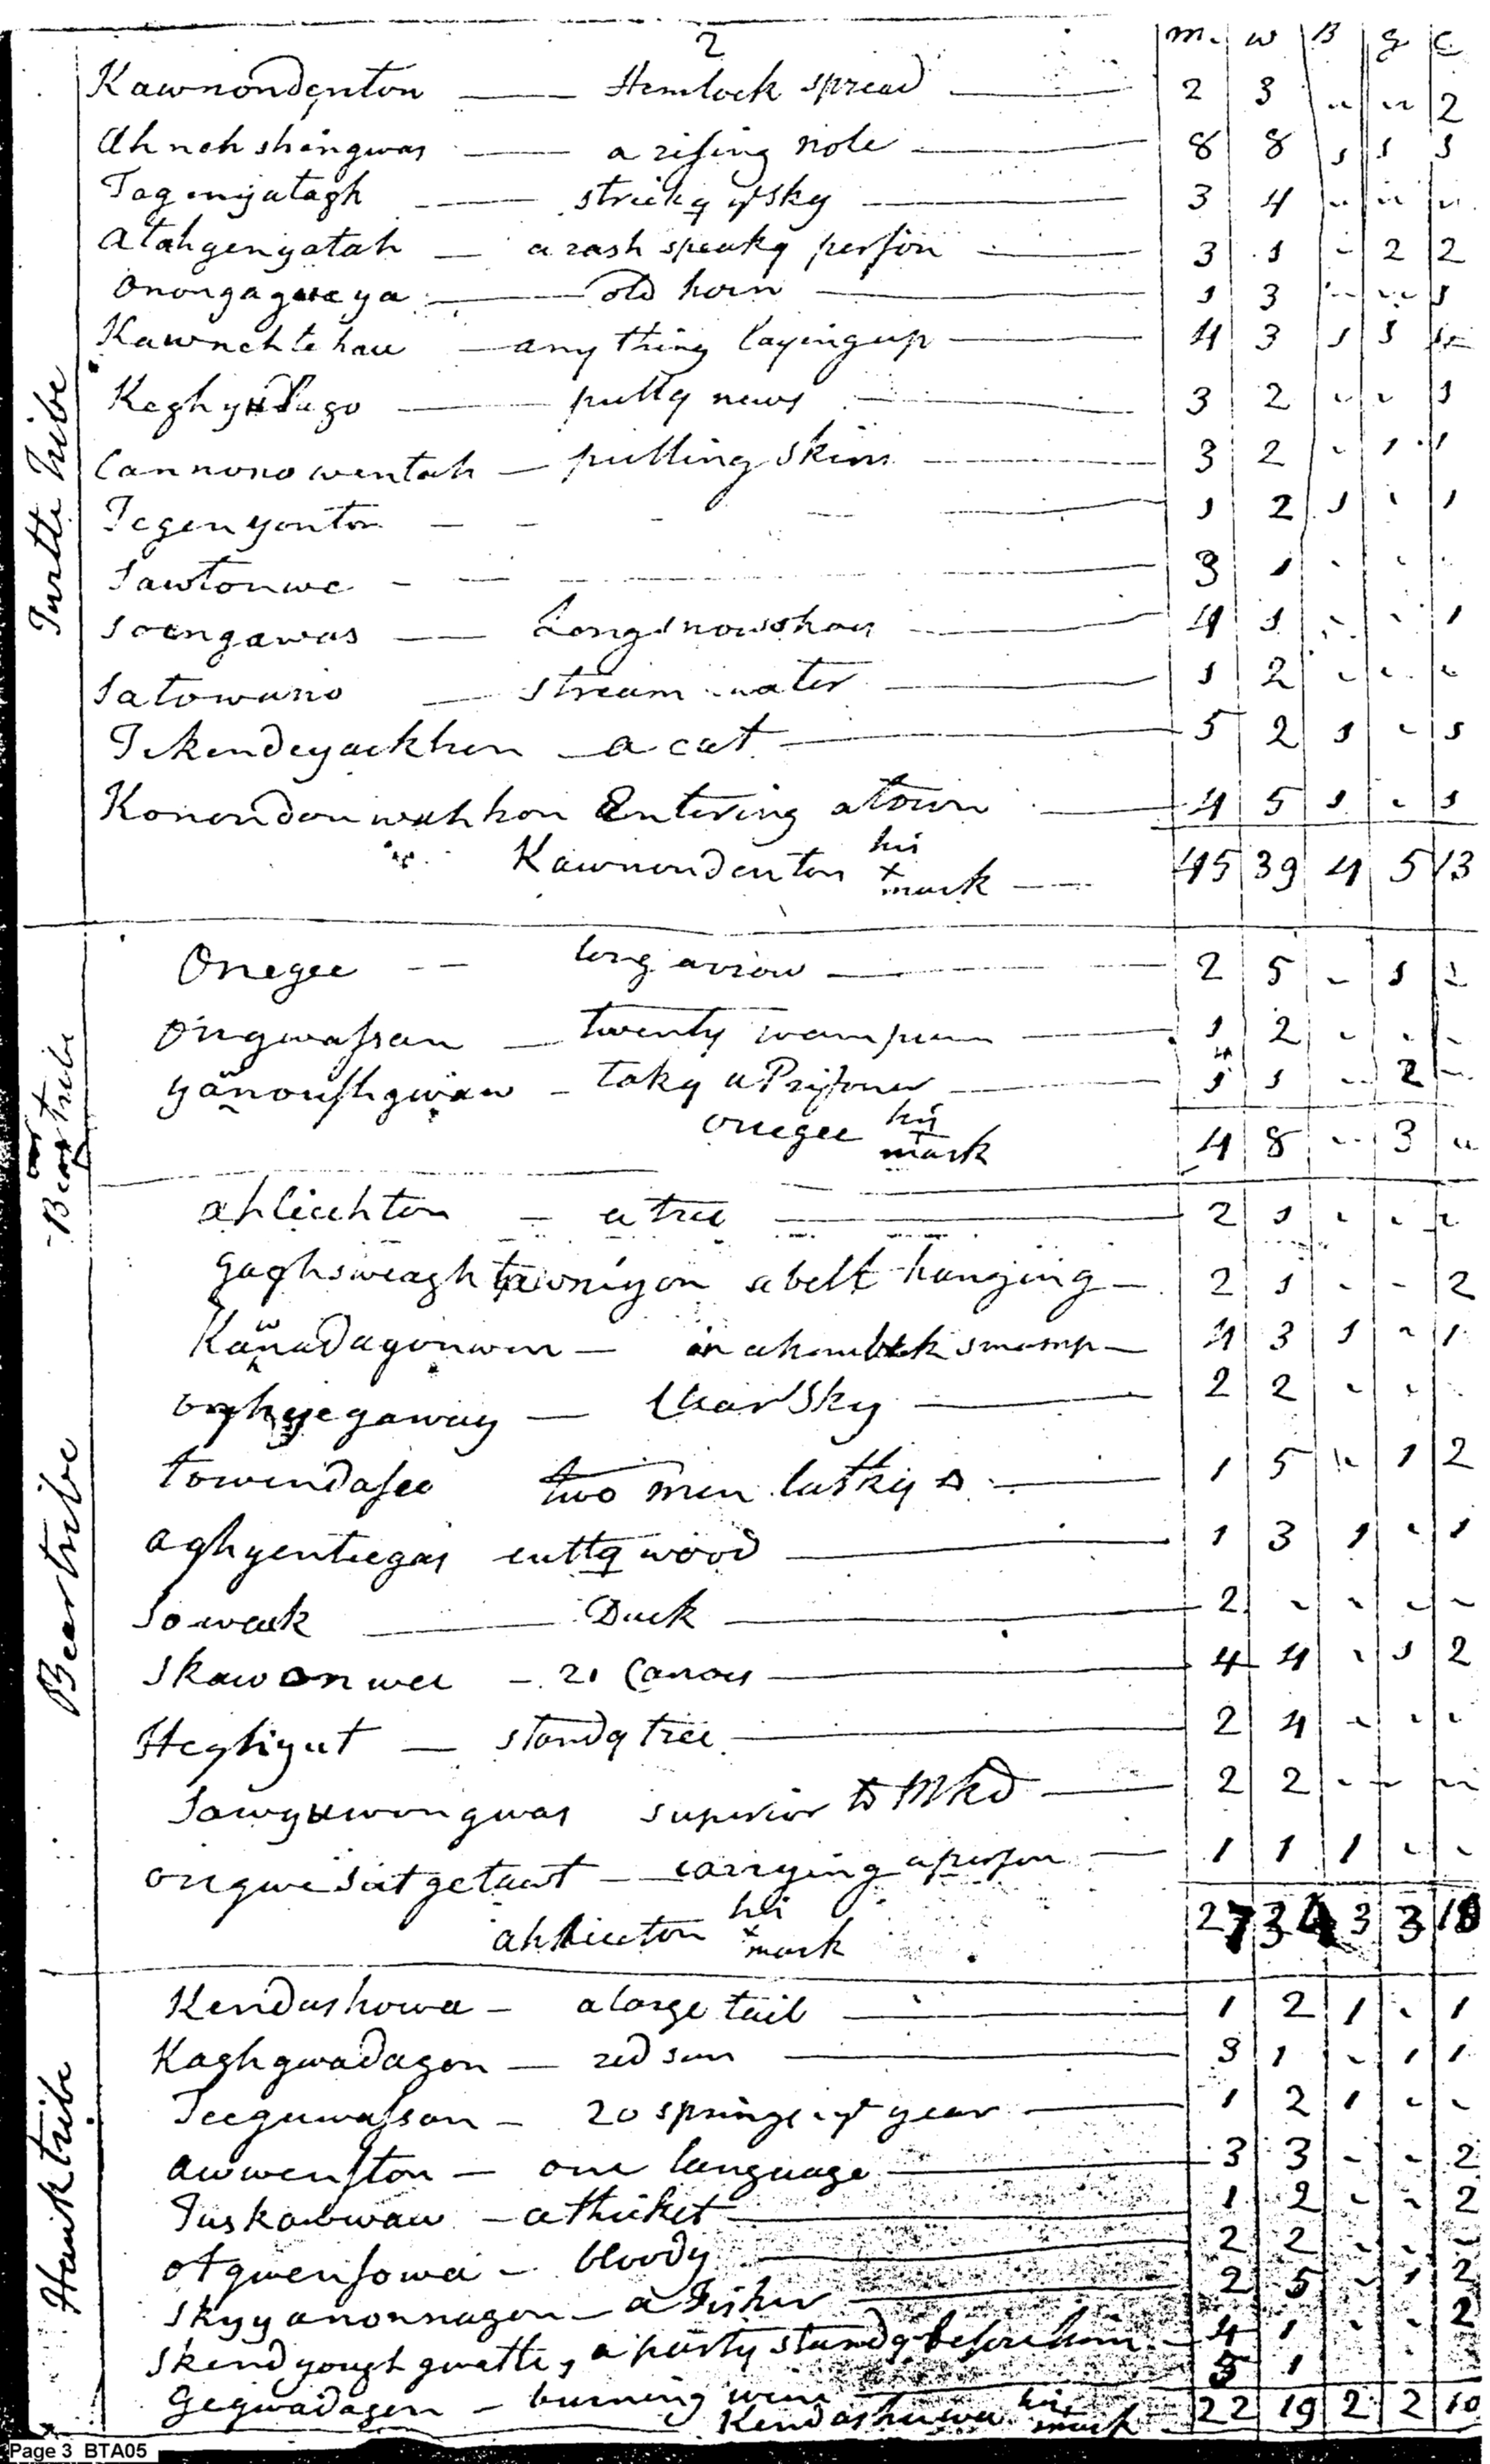 2
m. w B g c
Turtle Tribe
Kawnondenton — Hemlock spread — 2 3 .. .. 2
Ahnohshongwas — a rising note — 8 8 1 1 1
Tagonyatagh — strickg ye sky — 3 4 .. .. ..
Atahgengatah — a rash speakg person — 3 1 - 2 2
Onongagueya — old horn — 1 3 .. .. 1
Kawnehtehau — any thing laying up — 4 3 1 1
puttg news — 3 2 .. .. 1
Cannonowentah — pulling skins — 3 2 - 1 1
Tegenyonton — 1 2 1 - 1
Sawtonwe — 3 1 - - -
Soengawas — Long snowshoes — 4 1 - - 1
Satowano — stream water — 1 2 - - -
Tekendeyackhen — a cat — 5 2 1 - 1
Konondonwahhon Entering a town — 4 5 1 - 1
Kawnondenton his x mark — 45 39 4 5 13
tribe
Onegee — long arrow — 2 5 - 1 -
Ongwassan — twenty wampum — 1 2 - - -
Yanoushgwaw — takg a Prisoner — 1 1 - 2 -
onegee his mark — 4 8 - 3 -
Bear tribe
ahlieehton — a tree — 2 1 - - -
gaghsweaghtawniyon a belt hanging — 2 1 - - 2
in a hemlock swamp — 4 3 1 - 1
Clear Sky — 2 2 - - -
towindasee two men — 1 5 - 1 2
aghyenteegas cuttg wood — 1 3 1 - 1
Soweak — Duck — 2 - - - -
Skawonwee — 21 Canoes — 4 4 - 1 2
Heghigut — standg tree — 2 4 - - -
superior to — 2 2 - - -
ongwesatgetawt — carrying a person — 1 1 1 - -
ahlieeton his x mark — 27 34 3 3
Hawk tribe
Kendashowa — a large tail — 1 2 1 - 1
Kaghgwadagon — red sun — 3 1 - 1 1
Teeguwasson — 20 springs ye year — 1 2 1 - -
awwenston — one language — 3 3 - - 2
Tuskawwaw — a thicket — 1 2 - - 2
otgwensowa — bloody — 2 2 - - -
Skyyanonnagon — a Fisher — 2 5 - 1 2
Skendyoughgwatte, a party standg before him — 4 1 - - 2
Gegwadagen — burning — 5 1
Kendashowa his mark — 22 19 2 2 10
Page 3 BTA05